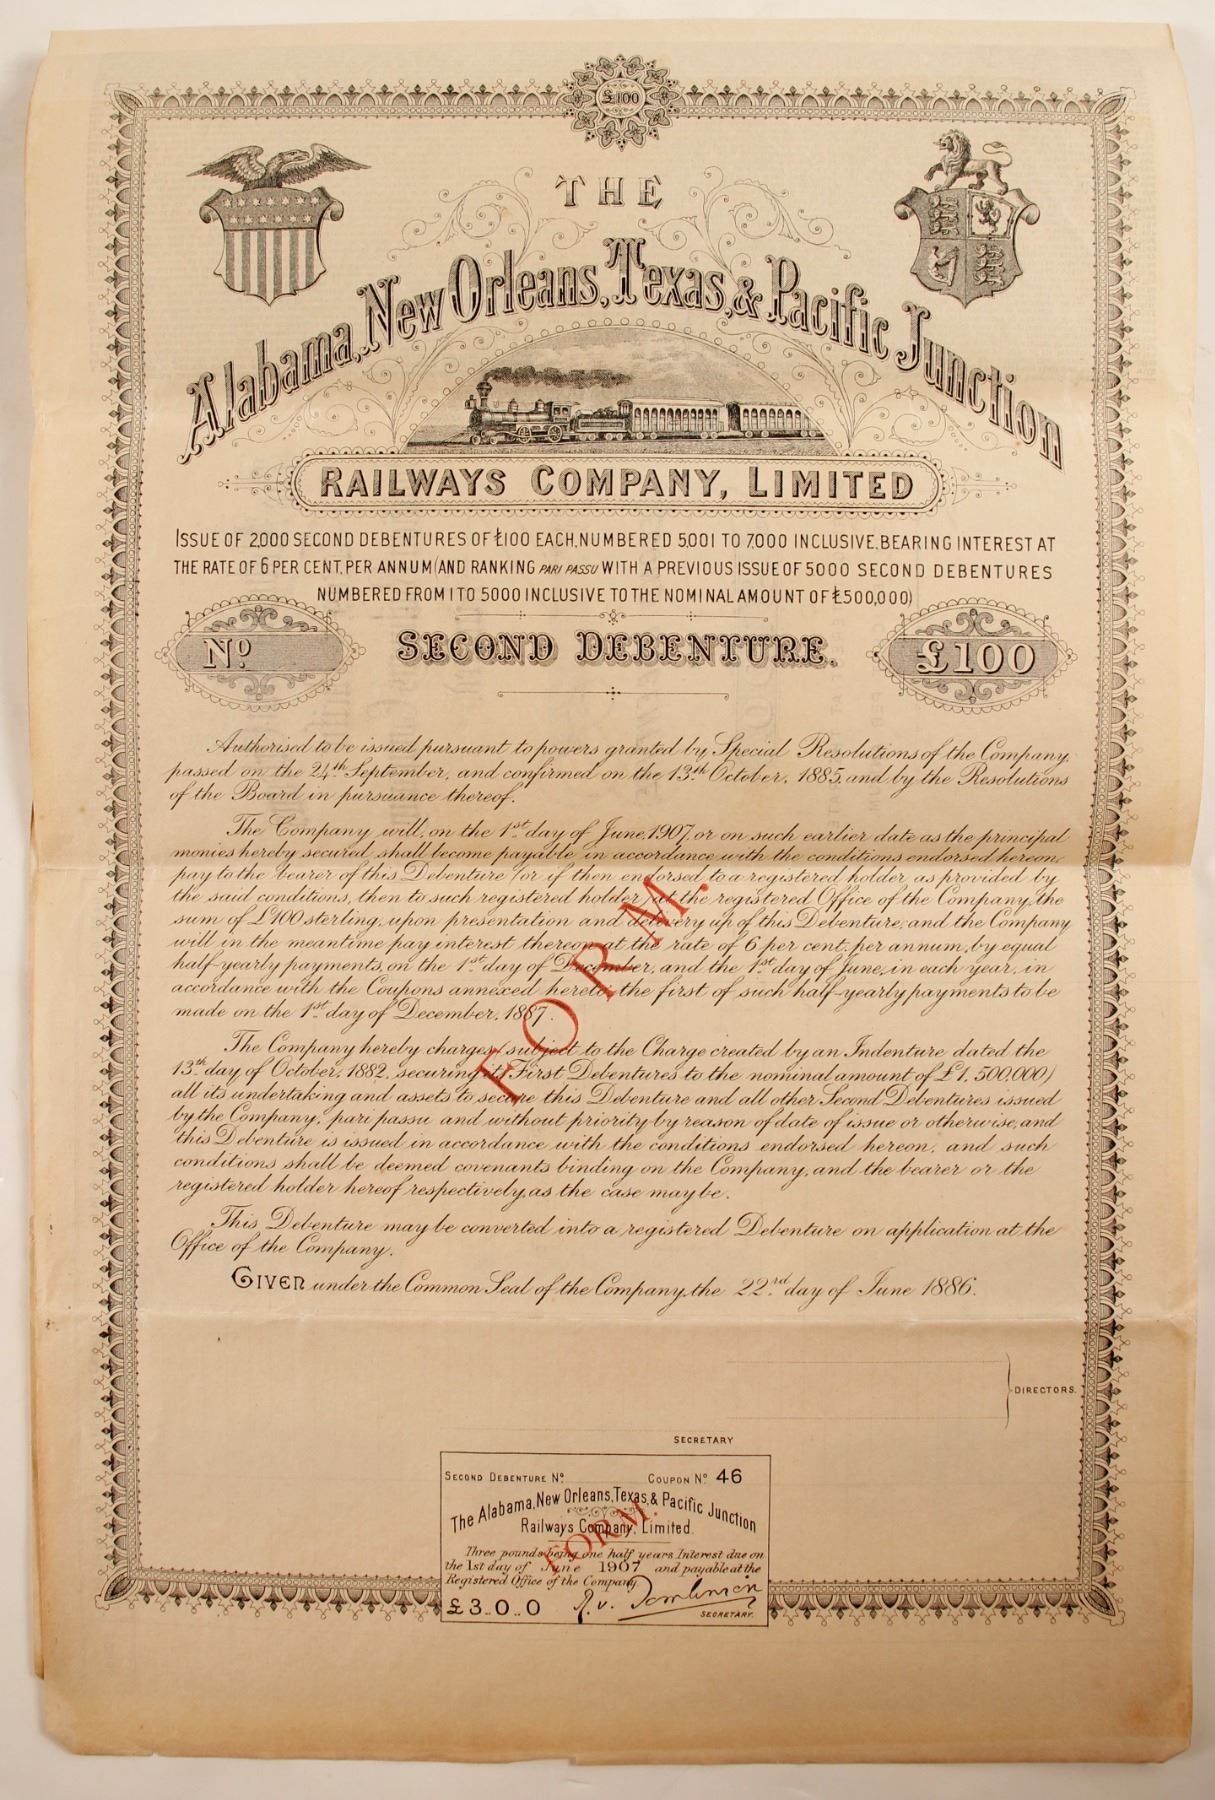 £100
THE
Alabama, New Orleans, Texas, & Pacific Junction
RAILWAYS COMPANY, LIMITED
ISSUE OF 2,000 SECOND DEBENTURES OF £100 EACH, NUMBERED 5,001 TO 7,000 INCLUSIVE, BEARING INTEREST AT
THE RATE OF 6 PER CENT. PER ANNUM (AND RANKING PARI PASSU WITH A PREVIOUS ISSUE OF 5000 SECOND DEBENTURES
NUMBERED FROM 1 TO 5000 INCLUSIVE TO THE NOMINAL AMOUNT OF £500,000)
No
SECOND DEBENTURE.
£100
Authorised to be issued pursuant to powers granted by Special Resolutions of the Company,
passed on the 24th September, and confirmed on the 13th October, 1885, and by the Resolutions
of the Board in pursuance thereof.
The Company will, on the 1st day of June, 1907, or on such earlier date as the principal
monies hereby secured shall become payable in accordance with the conditions endorsed hereon,
pay to the bearer of this Debenture (or if then endorsed to a registered holder as provided by
the said conditions, then to such registered holder) at the registered Office of the Company, the
sum of £100 sterling, upon presentation and delivery up of this Debenture, and the Company
will in the meantime pay interest thereon at the rate of 6 per cent. per annum, by equal
half-yearly payments, on the 1st day of December, and the 1st day of June, in each year, in
accordance with the Coupons annexed hereto, the first of such half-yearly payments to be
made on the 1st day of December, 1887.
The Company hereby charges (subject to the Charge created by an Indenture dated the
13th day of October, 1882, securing its First Debentures to the nominal amount of £1,500,000)
all its undertaking and assets to secure this Debenture and all other Second Debentures issued
by the Company, pari passu and without priority by reason of date of issue or otherwise, and
this Debenture is issued in accordance with the conditions endorsed hereon, and such
conditions shall be deemed covenants binding on the Company, and the bearer or the
registered holder hereof respectively, as the case may be.
This Debenture may be converted into a registered Debenture on application at the
Office of the Company.
GIVEN under the Common Seal of the Company, the 22nd day of June 1886.
FORM.
DIRECTORS.
SECRETARY
SECOND DEBENTURE No COUPON No 46
The Alabama, New Orleans, Texas, & Pacific Junction
Railways Company, Limited.
FORM.
Three pounds being one half years Interest due on
the 1st day of June 1907 and payable at the
Registered Office of the Company
£3..0..0 Tomlinson
SECRETARY.